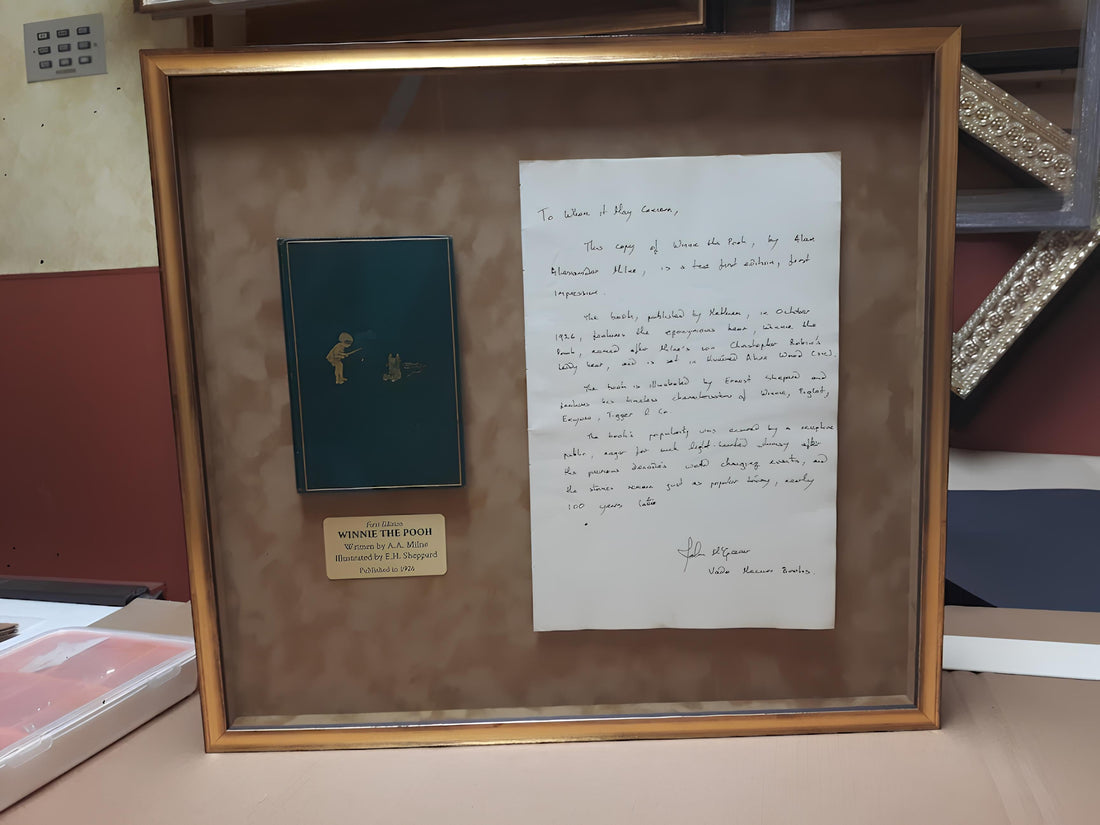 First Edition
WINNIE THE POOH
Written by A.A. Milne
Illustrated by E.H. Sheppard
Published in 1926
To Whom it May Concern,
This copy of Winnie the Pooh, by Alan
Alexander Milne, is a true first edition, first
impression.
The book, published by Methuen, in October
1926, features the eponymous bear, Winnie the
Pooh, named after Milne's son Christopher Robin's
teddy bear, and is set in Hundred Aker Wood (sic).
The book is illustrated by Ernest Shepard and
features his timeless characterisations of Winnie, Piglet,
Eeyore, Tigger & Co.
The book's popularity was ensured by a receptive
public, eager for such light-hearted whimsy after
the previous decade's world changing events, and
the stories remain just as popular today, nearly
100 years later
John
Books.